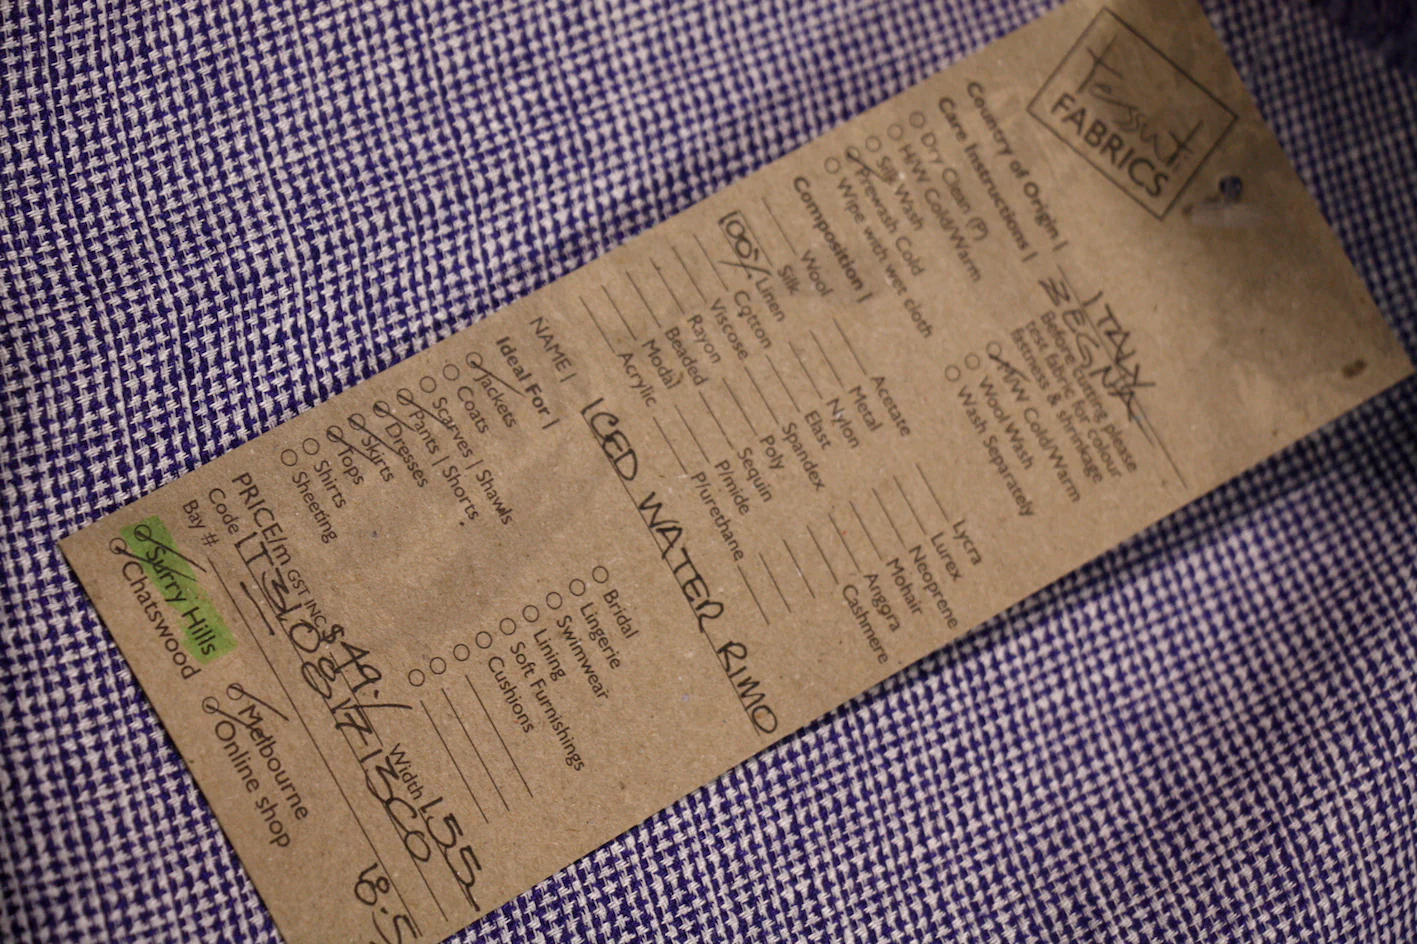 Tessuti
FABRICS
Country of Origin | ITALY
Care Instructions | ZEGNA
Dry Clean (P)
H/W Cold/Warm
Silk Wash
Prewash Cold
Wipe with wet cloth
Before cutting please
test fabric for colour
fastness & shrinkage
M/W Cold/Warm
Wool Wash
Wash Separately
Composition |
Wool
Silk
100% Linen
Cotton
Viscose
Rayon
Beaded
Modal
Acrylic
Acetate
Metal
Nylon
Elast
Spandex
Poly
Sequin
P/mide
P/urethane
Lycra
Lurex
Neoprene
Mohair
Angora
Cashmere
NAME | ICED WATER RIMO
Ideal For |
Jackets
Coats
Scarves | Shawls
Pants | Shorts
Dresses
Skirts
Tops
Shirts
Sheeting
Bridal
Lingerie
Swimwear
Lining
Soft Furnishings
Cushions
PRICE/m GST INC $49.- Width 1.55
Code |
Bay #
18.5
Surry Hills
Chatswood
Melbourne
Online shop